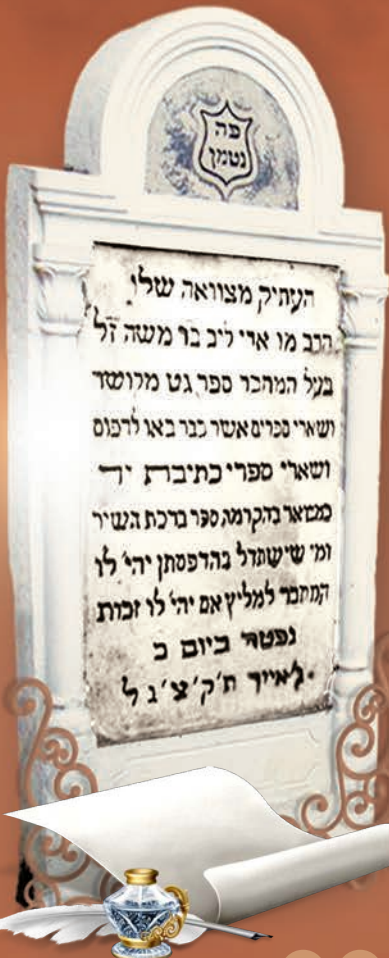 פה
נטמן
העתיק מצוואה שלו
הרב מו ארי ליב בר משה זל
בעל המחבר ספר גט מקושר
ושארי ספרים אשר כבר באו לדפוס
ושארי ספרי כתיבת יד
כמשאר בהקדמה ספר ברכת השיר
ומי שישתדל בהדפסתן יהי׳ לו
המחבר למליץ אם יהי׳ לו זכות
נפטר ביום כ
לאייר ת׳ק׳צ׳ג ל